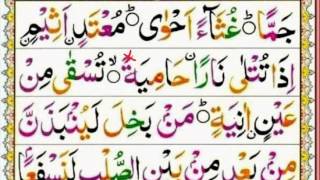 جَمًّا ؕ غُثَآءً اَحْوٰى ؕ مُعْتَدٍ اَثِيْمٍ ۙ
اِذَا تُتْلٰى نَارًا حَامِيَةً ۙ تُسْقٰى مِنْ
عَيْنٍ اٰنِيَةٍ ؕ مَنْۢ بَخِلَ لَيُنْۢبَذَنَّ
مِنْۢ بَعْدِ مِنْۢ بَيْنِ الصُّلْبِ لَنَسْفَعًۢا